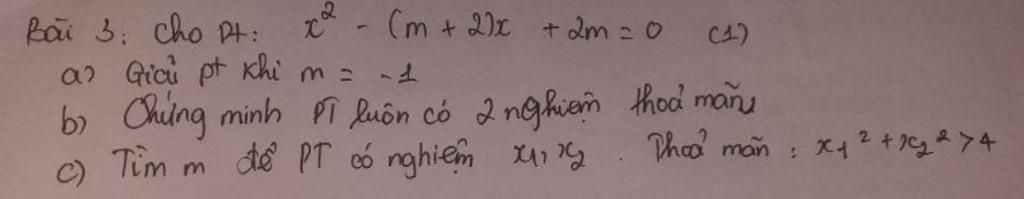 Bài 3: Cho pt: x² - (m + 2)x + 2m = 0 (1)
a) Giải pt khi m = -1
b) Chứng minh PT luôn có 2 nghiệm thoả mãn
c) Tìm m để PT có nghiệm x₁, x₂. Thoả mãn: x₁² + x₂² > 4